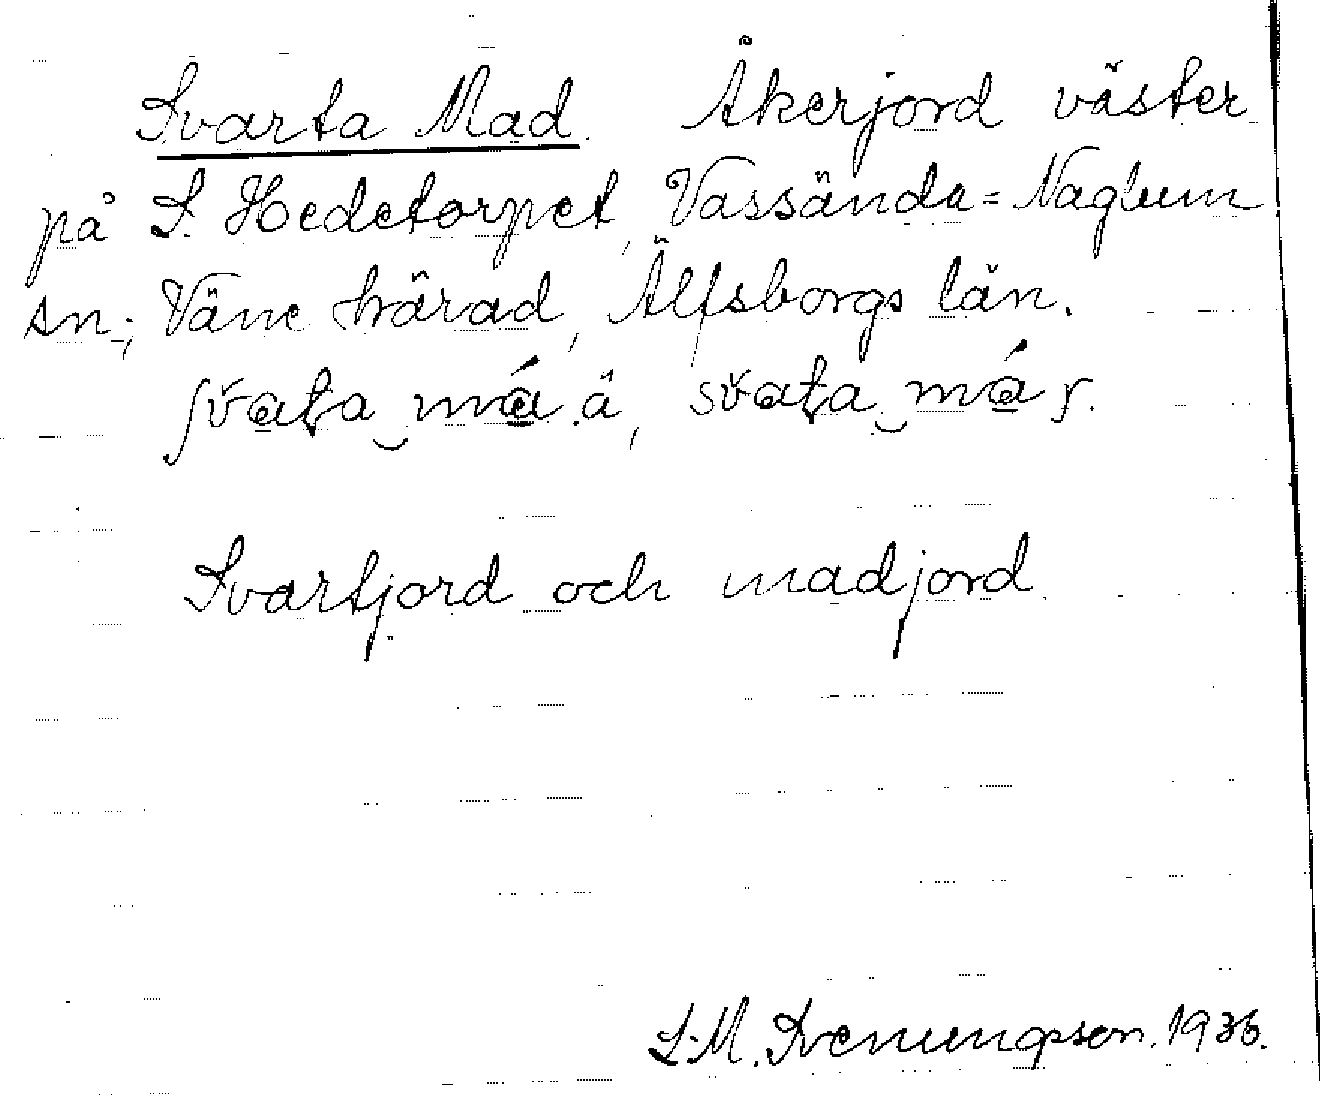 Svarta Mad. Åkerjord väster
på S. Hedetorpet, Vassända=Naglum
sn; Väne härad, Älfsborgs län.
ʃvata má.ä, svata má ɼ.
Svartjord och madjord
S.M. Svenungson. 1936.